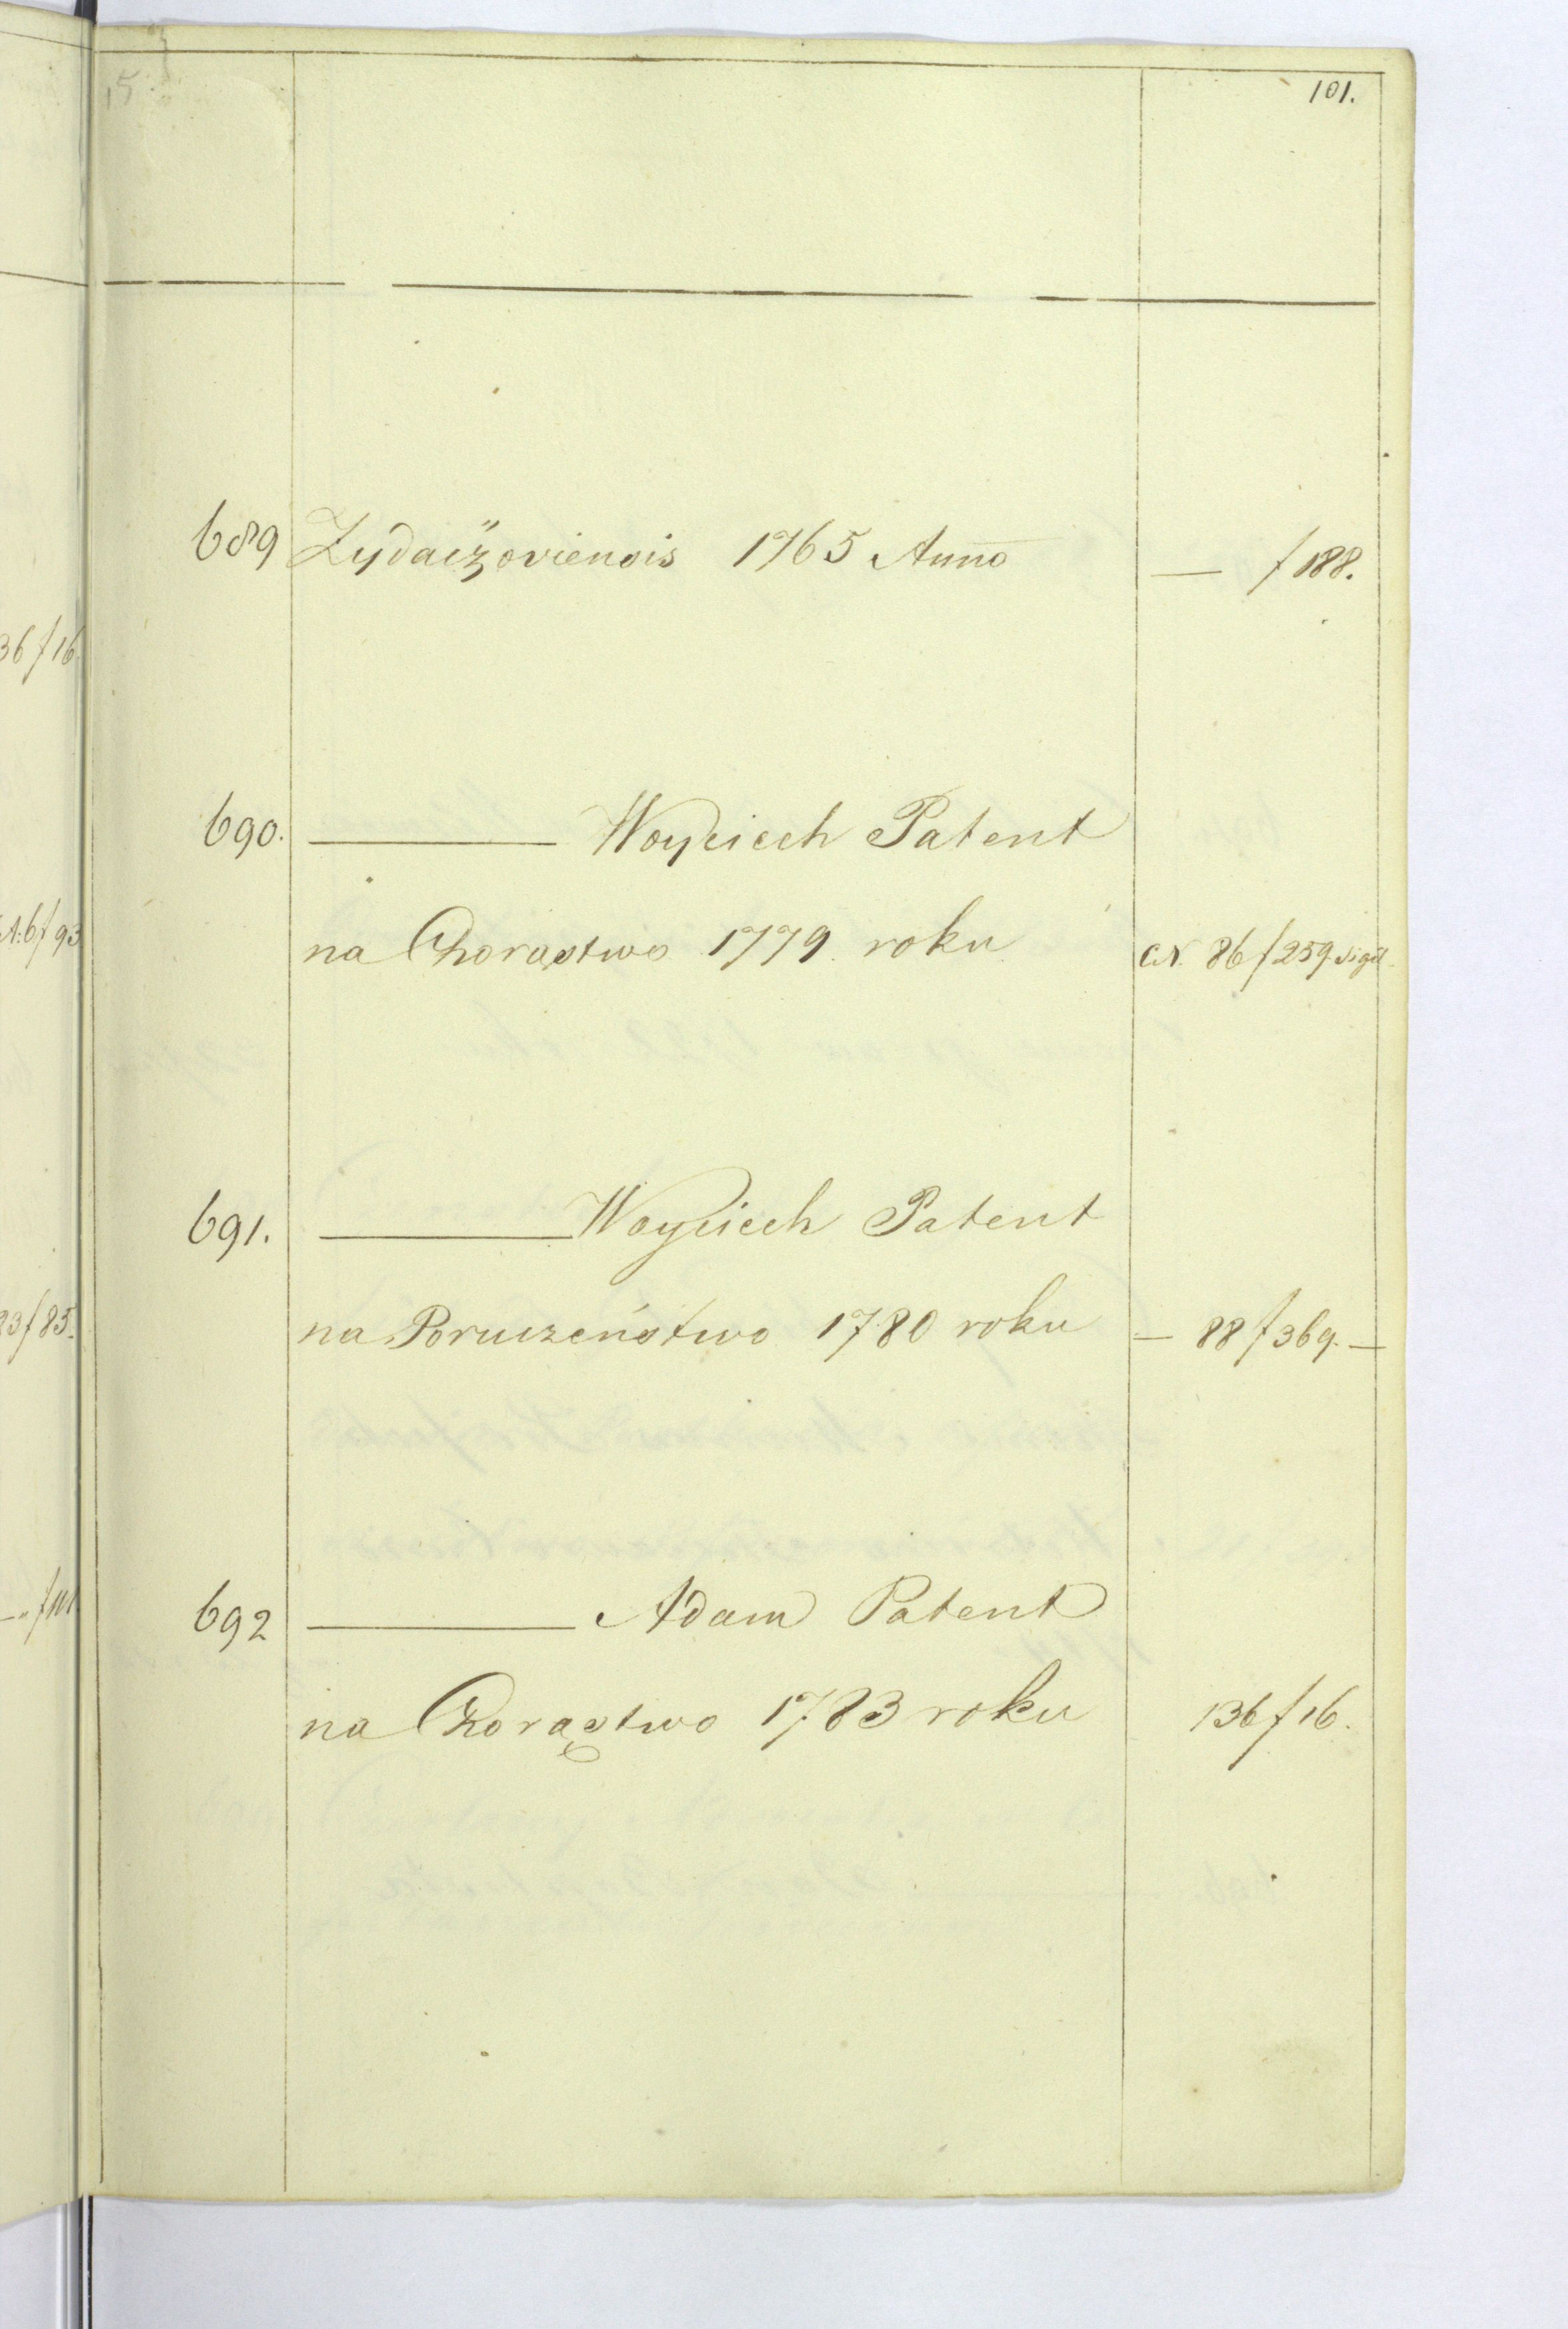 101.
689 Zydaczoviensis 1765 Anno — f 188.
690. ——— Woyciech Patent
na Chorąstwo 1779. roku C.N. 86 f 259. Sigil.
691. ——— Woyciech Patent
na Poruczeństwo 1780 roku — 88 f 369. —
692 ——— Adam Patent
na Chorąstwo 1783 roku 136 f 16.